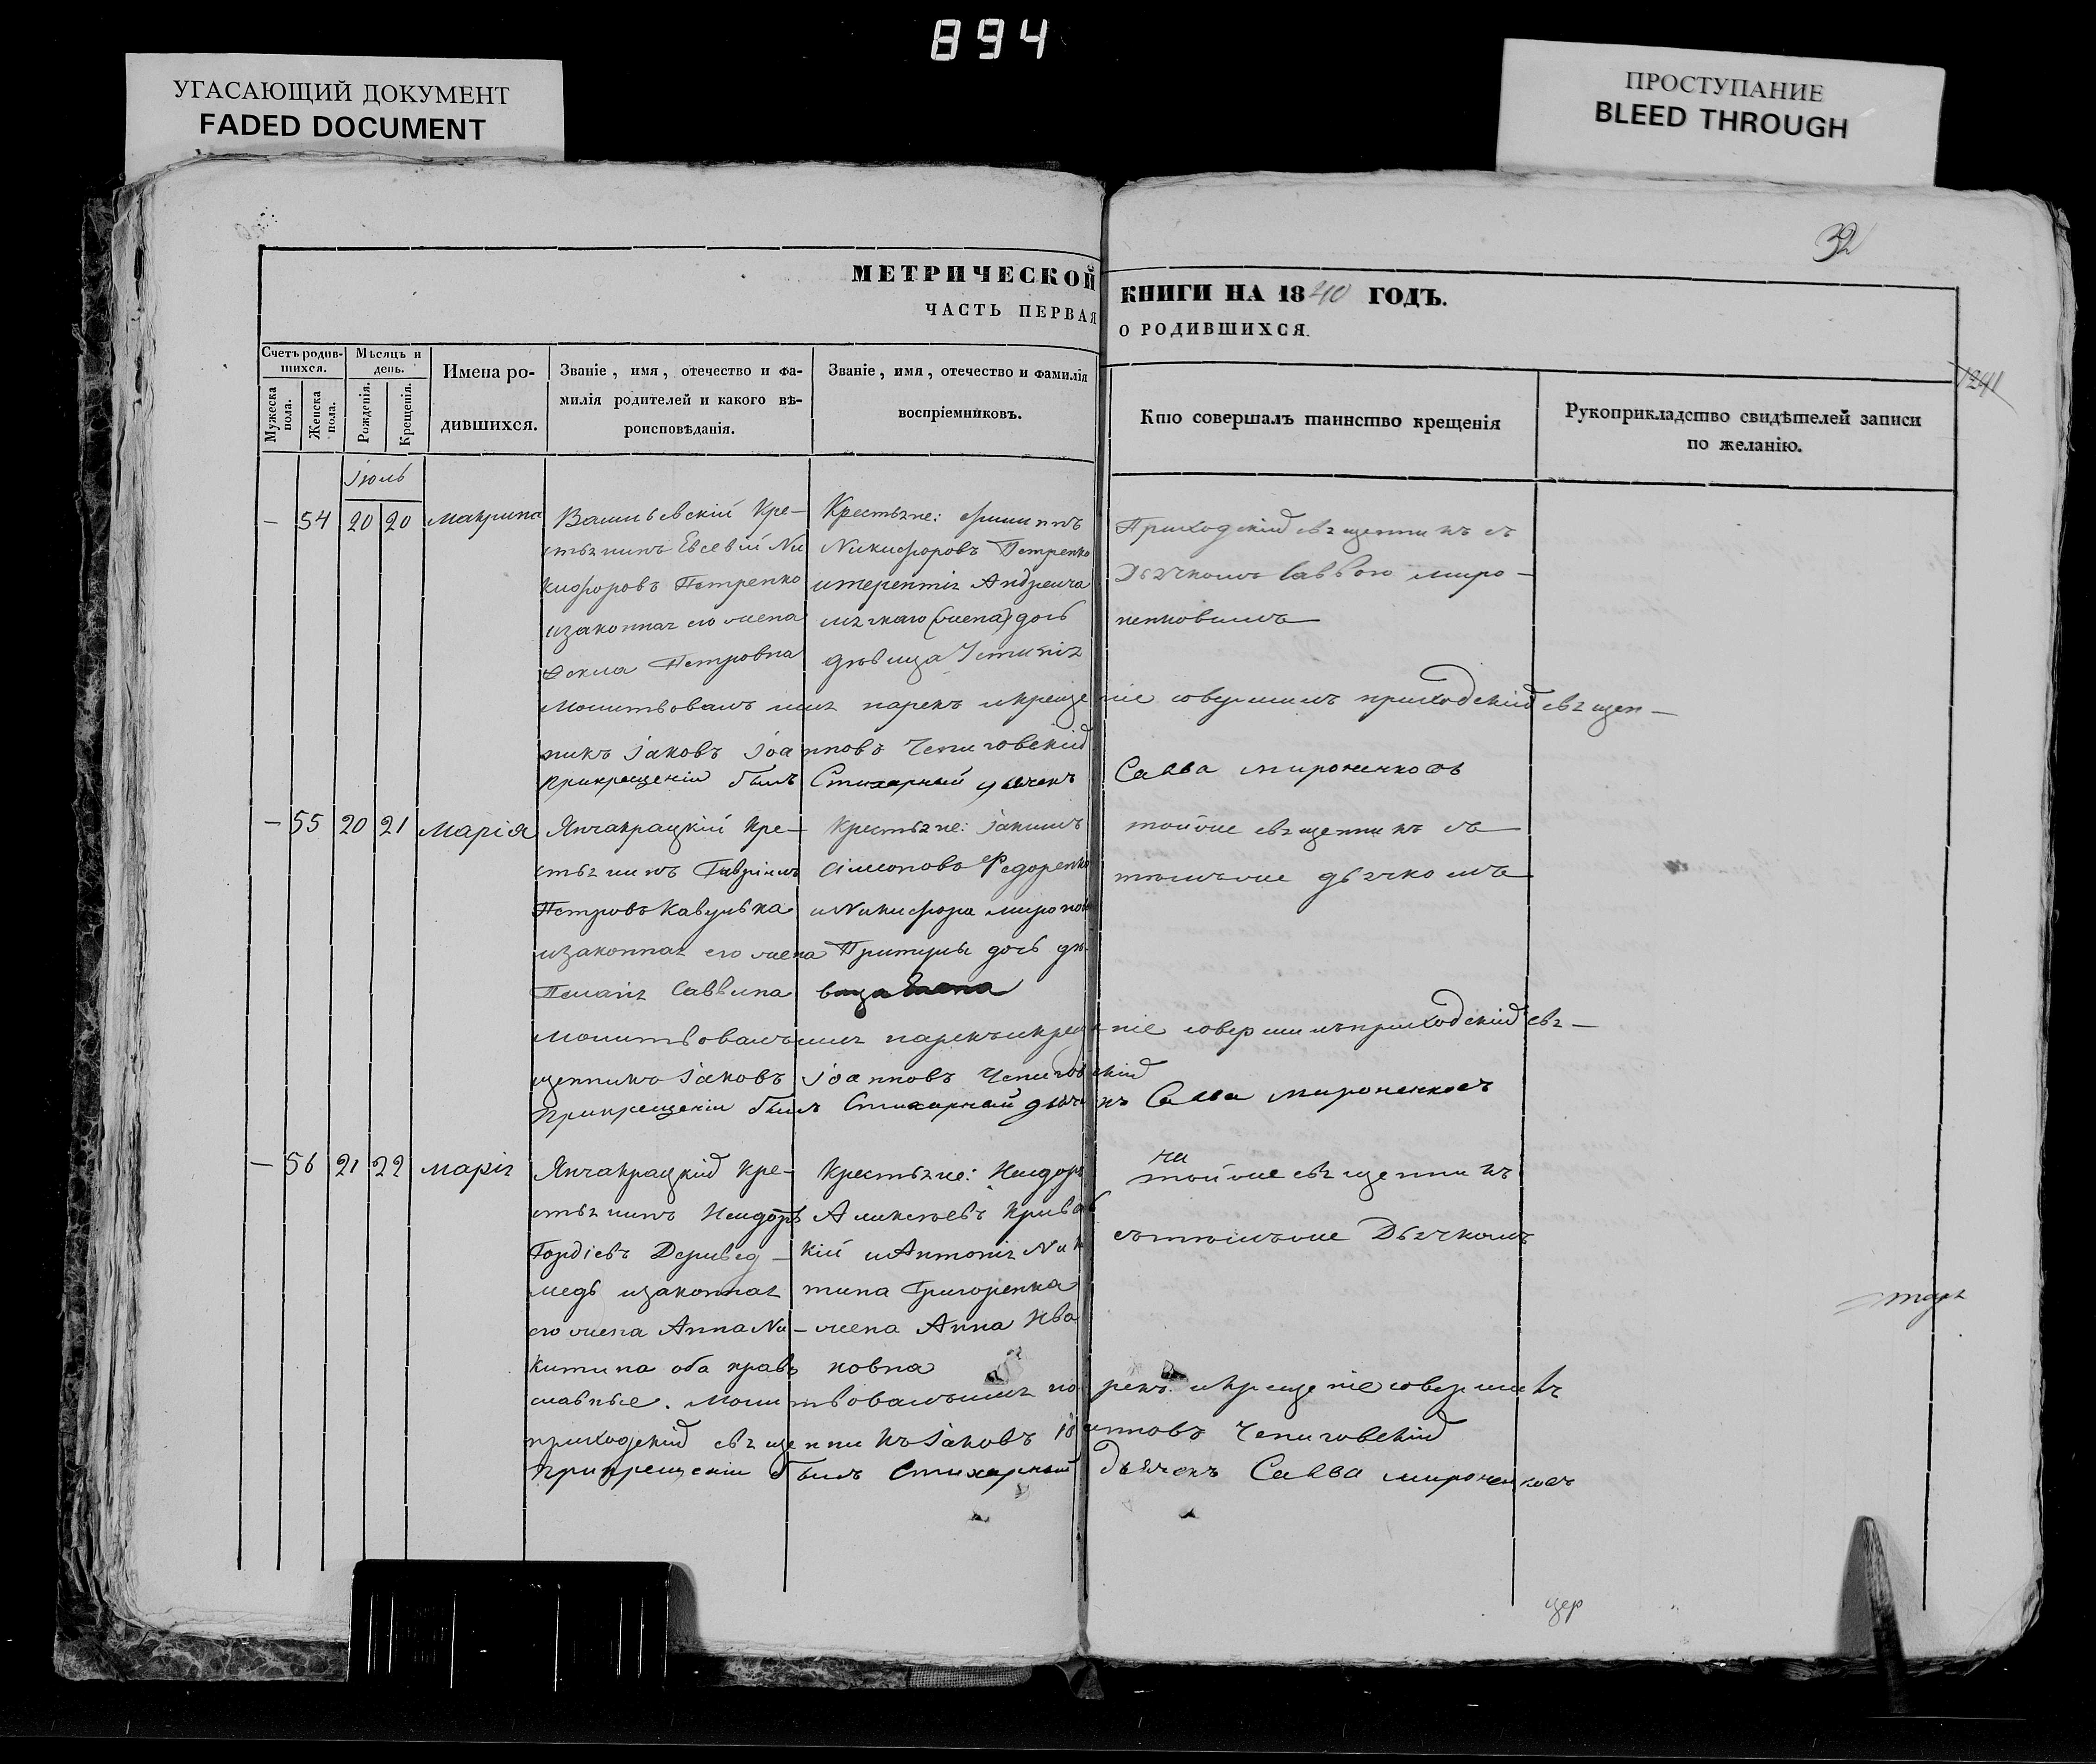 894
УГАСАЮЩИЙ ДОКУМЕНТ
FADED DOCUMENT
ПРОСТУПАНИЕ
BLEED THROUGH
32
МЕТРИЧЕСКОЙ КНИГИ НА 1840 ГОДЪ.
ЧАСТЬ ПЕРВАЯ О РОДИВШИХСЯ.
1241
Счетъ родив-
шихся.
Мужеска
пола.
Женска
пола.
Мѣсяцъ и
день.
Рожденія.
Крещенія.
Имена ро-
дившихся.
Званіе, имя, отечество и фа-
милія родителей и какого вѣ-
роисповѣданія.
Званіе, имя, отечество и фамилія
воспріемниковъ.
Кто совершалъ таинство крещенія
Рукоприкладство свидѣтелей записи
по желанію.
Іюль
— 54 20 20 Макрина
Васильевскій Кре-
стьянинъ Евсевій Ни
кифоровъ Петренко
изаконная его жена
Ѳекла Петровна
Крестьяне: Филиппъ
Никифоровъ Петренко
итерентія Андреича
дочь
дѣвица Устинія
Приходскій священникъ съ
Дьячкомъ Саввою Миро-
ненковымъ
Молитвовалъ имя нарекъ икрещеніе совершилъ приходскій священ-
никъ Іаковъ Іоанновъ Чепиговскій
Прикрещеніи былъ Стихарный дьячекъ Савва Мироненковъ
— 55 20 21 Марія
Янчакрацкій Кре-
стьянинъ Гавріилъ
Петровъ Кавунъка
изаконная его жена
Пелагія Саввина
Крестьяне: Іакимъ
Сімоновъ Федоренко
иНикифора Миронова
Притулы дочь дѣ-
вица
тойже священникъ съ
тѣмъже дьячкомъ
Молитвовалъ имя нарекъ икрещеніе совершилъ приходскій свя-
щенникъ Іаковъ Іоанновъ Чепиговскій
Прикрещеніи былъ Стихарный дьячекъ Савва Мироненковъ
— 56 21 22 Марія
Янчакрацкій Кре-
стьянинъ Исидоръ
Гордіевъ Дериведь-
медь изаконная
его жена Анна Ни-
китина оба право
славные.
Крестьяне: Исидоръ
Алексѣевъ Кривов
кій иАнтонія Ники
тина Григоренка
жена Анна Ива
новна
тойже священникъ
сътѣмъже Дьячкомъ
Молитвовалъ имя нарекъ икрещеніе совершилъ
приходскій священникъ Іаковъ Іоанновъ Чепиговскій
Прикрещеніи былъ Стихарный дьячекъ Савва Мироненковъ
цер